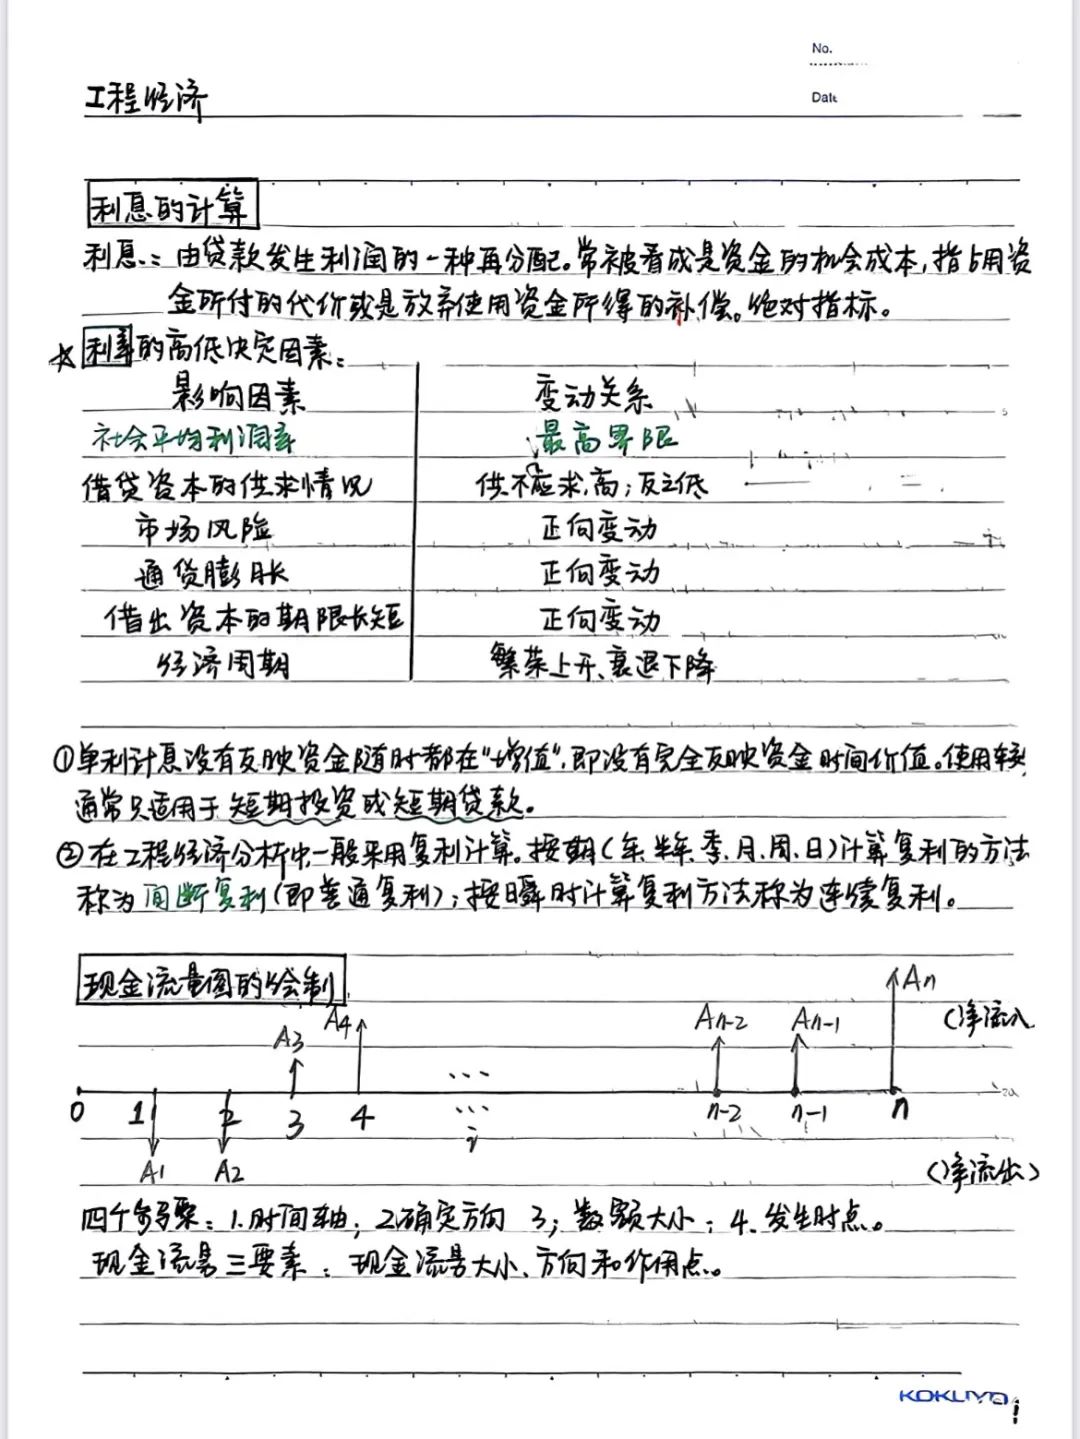 No.
Date
工程经济
利息的计算
利息：由贷款发生利润的一种再分配。常被看成是资金的机会成本，指占用资
金所付的代价或是放弃使用资金所得的补偿。绝对指标。
☆利率的高低决定因素：
影响因素 变动关系
社会平均利润率 最高界限
借贷资本的供求情况 供不应求，高；反之低
市场风险 正向变动
通货膨胀 正向变动
借出资本的期限长短 正向变动
经济周期 繁荣上升、衰退下降
①单利计息没有反映资金随时都在“增值”，即没有完全反映资金时间价值。使用较
通常只适用于短期投资或短期贷款。
②在工程经济分析中一般采用复利计算。按期（年、半年、季、月、周、日）计算复利的方法
称为间断复利（即普通复利）；按瞬时计算复利方法称为连续复利。
现金流量图的绘制
A3 A4 An-2 An-1 An
（净流入
0 1 2 3 4 ... ... i n-2 n-1 n
A1 A2
（净流出）
四个参素：1.时间轴；2.确定方向 3；数额大小；4.发生时点。
现金流量三要素：现金流量大小、方向和作用点。
KOKUYO
1